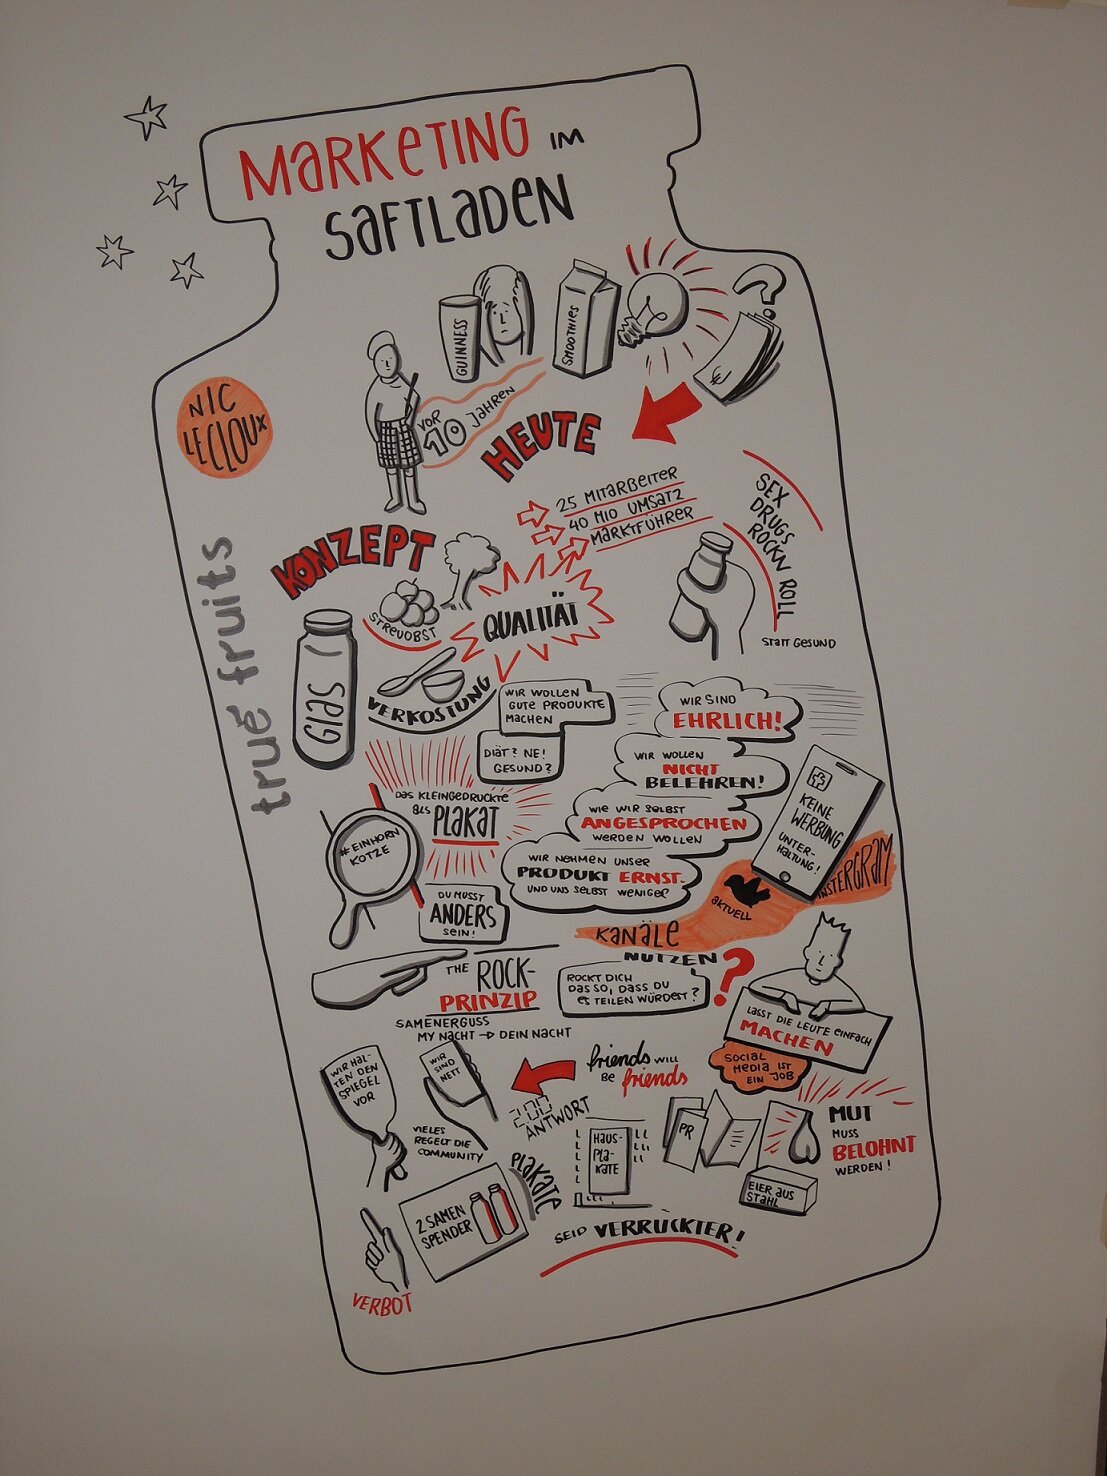 MARKETING IM
SAFTLADEN
NIC
LECLOUX
true fruits
GUINNESS
SMOOTHIES
?
€
VOR
10 JAHREN
HEUTE
25 MITARBEITER
40 MIO UMSATZ
MARKTFÜHRER
SEX
DRUGS
ROCKN ROLL
STATT GESUND
KONZEPT
STREUOBST
QUALITÄT
GLAS
VERKOSTUNG
WIR WOLLEN
GUTE PRODUKTE
MACHEN
DIÄT? NE!
GESUND?
WIR SIND
EHRLICH!
WIR WOLLEN
NICHT
BELEHREN!
WIE WIR SELBST
ANGESPROCHEN
WERDEN WOLLEN
WIR NEHMEN UNSER
PRODUKT ERNST
UND UNS SELBST WENIGER
DAS KLEINGEDRUCKTE
als PLAKAT
#EINHORN
KOTZE
DU MUSST
ANDERS
SEIN!
KEINE
WERBUNG
UNTER-
HALTUNG!
INSTERGRAM
AKTUELL
KANÄLE
NUTZEN
THE ROCK-
PRINZIP
ROCKT DICH
DAS SO, DASS DU
ES TEILEN WÜRDEST?
?
LASST DIE LEUTE EINFACH
MACHEN
SOCIAL
MEDIA IST
EIN JOB
SAMENERGUSS
MY NACHT → DEIN NACHT
WIR HAL-
TEN DEN
SPIEGEL
VOR
WIR
SIND
NETT
friends WILL
BE friends
200
ANTWORT
VIELES
REGELT DIE
COMMUNITY
HAUS-
PLA-
KATE
PR
MUT
MUSS
BELOHNT
WERDEN!
EIER AUS
STAHL
PLAKATE
2 SAMEN
SPENDER
SEID VERRÜCKTER!
VERBOT